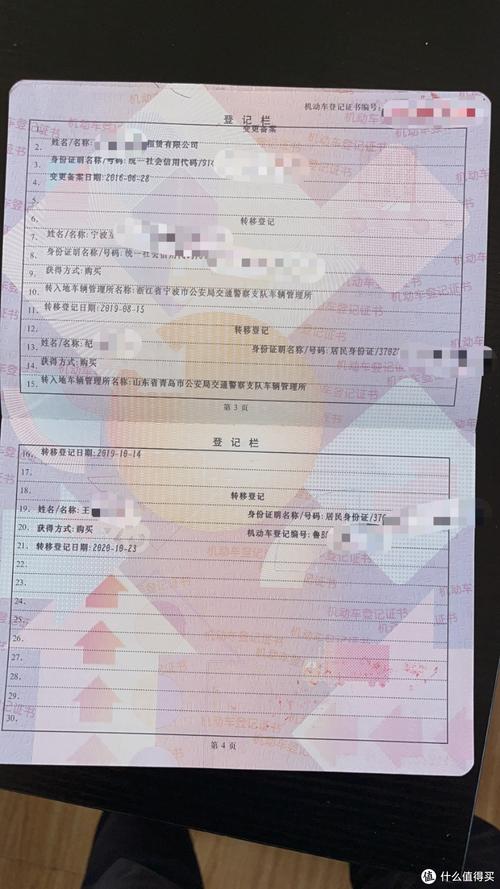 机动车登记证书编号:
登记栏
1. 变更备案
2. 姓名/名称: 租赁有限公司
3. 身份证明名称/号码:统一社会信用代码/91
4. 变更备案日期:2016-06-28
5.
6. 转移登记
7. 姓名/名称:宁波
8. 身份证明名称/号码:统一社会信用代码
9. 获得方式:购买
10. 转入地车辆管理所名称:浙江省宁波市公安局交通警察支队车辆管理所
11. 转移登记日期:2019-08-15
12. 转移登记
13. 姓名/名称:纪 身份证明名称/号码:居民身份证/3702
14. 获得方式:购买
15. 转入地车辆管理所名称:山东省青岛市公安局交通警察支队车辆管理所
第 3 页
登记栏
16. 转移登记日期:2019-10-14
17.
18. 转移登记
19. 姓名/名称:王 身份证明名称/号码:居民身份证/370
20. 获得方式:购买 机动车登记编号:鲁B
21. 转移登记日期:2020-10-23
22.
23.
24.
25.
26.
27.
28.
29.
30.
第 4 页
值 什么值得买